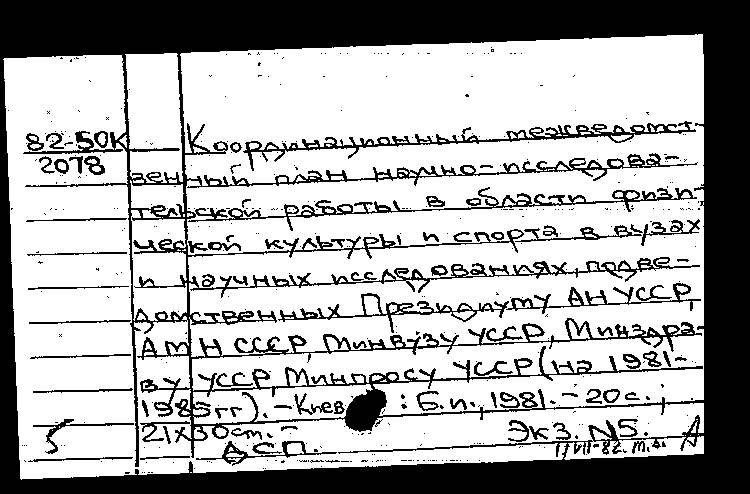 82-50К
2078
Координационный межведомст-
венный план научно-исследова-
тельской работы в области физи-
ческой культуры и спорта в вузах
и научных исследованиях, подве-
домственных Президиуму АН УССР,
АМН СССР, Минвузу УССР, Минздра-
ву УССР, Минпросу УССР (на 1981-
1985 гг). - Киев : Б.и., 1981. - 20 с. ;
21х30 см. -
ДСП.
Экз. N5.
5